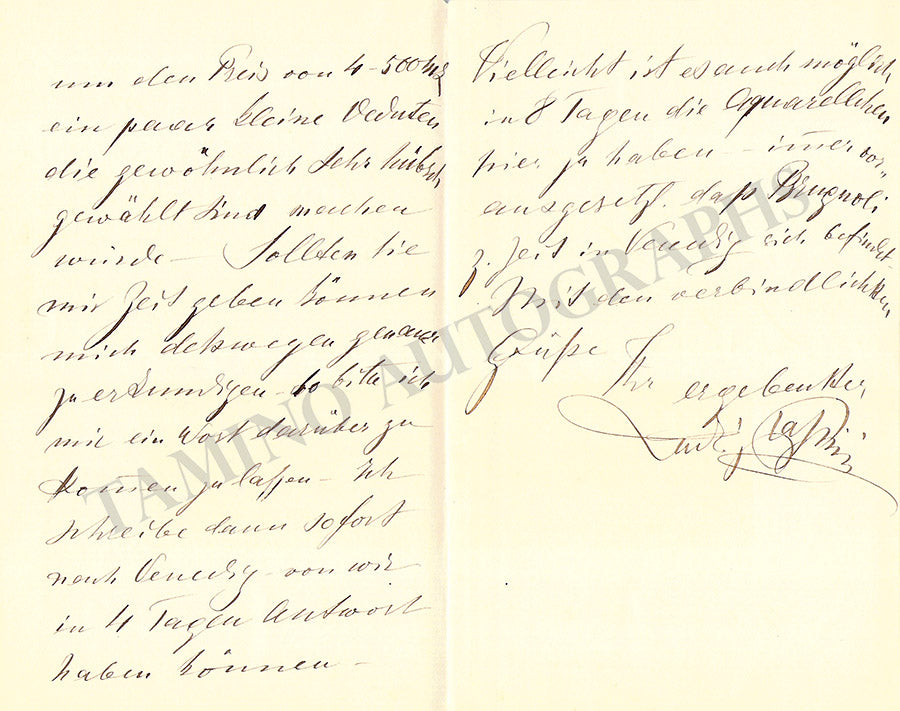 um den Preis von 4-500 M
ein paar kleine Veduten
die gewöhnlich sehr hübsch
gewählt sind machen
würde – Sollten sie
mir Zeit geben können
mich deßwegen genauer
zu erkundigen – so bitte ich
mir ein Wort darüber zu
kom̄en zu lassen – Ich
schreibe dann sofort
nach Venedig – von wo wir
in 4 Tagen Antwort
haben können –
Vielleicht ist es auch möglich
in 8 Tagen die Aquarellchen
hier zu haben – im̄er vor„
ausgesetzt daß Brugnoli
z. Zeit in Venedig sich befindet –
Mit den verbindlichsten
Grüße Ihr
ergebenster
TAMINO AUTOGRAPHS